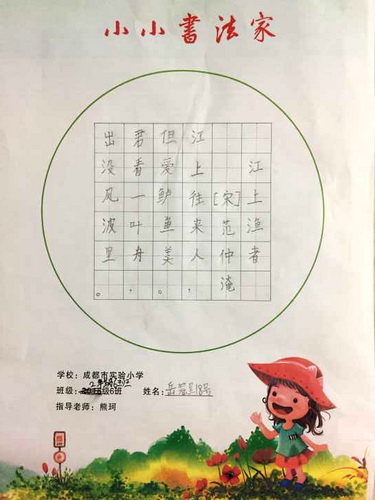 小小書法家
江上渔者
[宋]范仲淹
江上往来人，
但爱鲈鱼美。
君看一叶舟，
出没风波里。
学校：成都市实验小学
班级：级6班 姓名：岳 18号
指导老师：熊珂